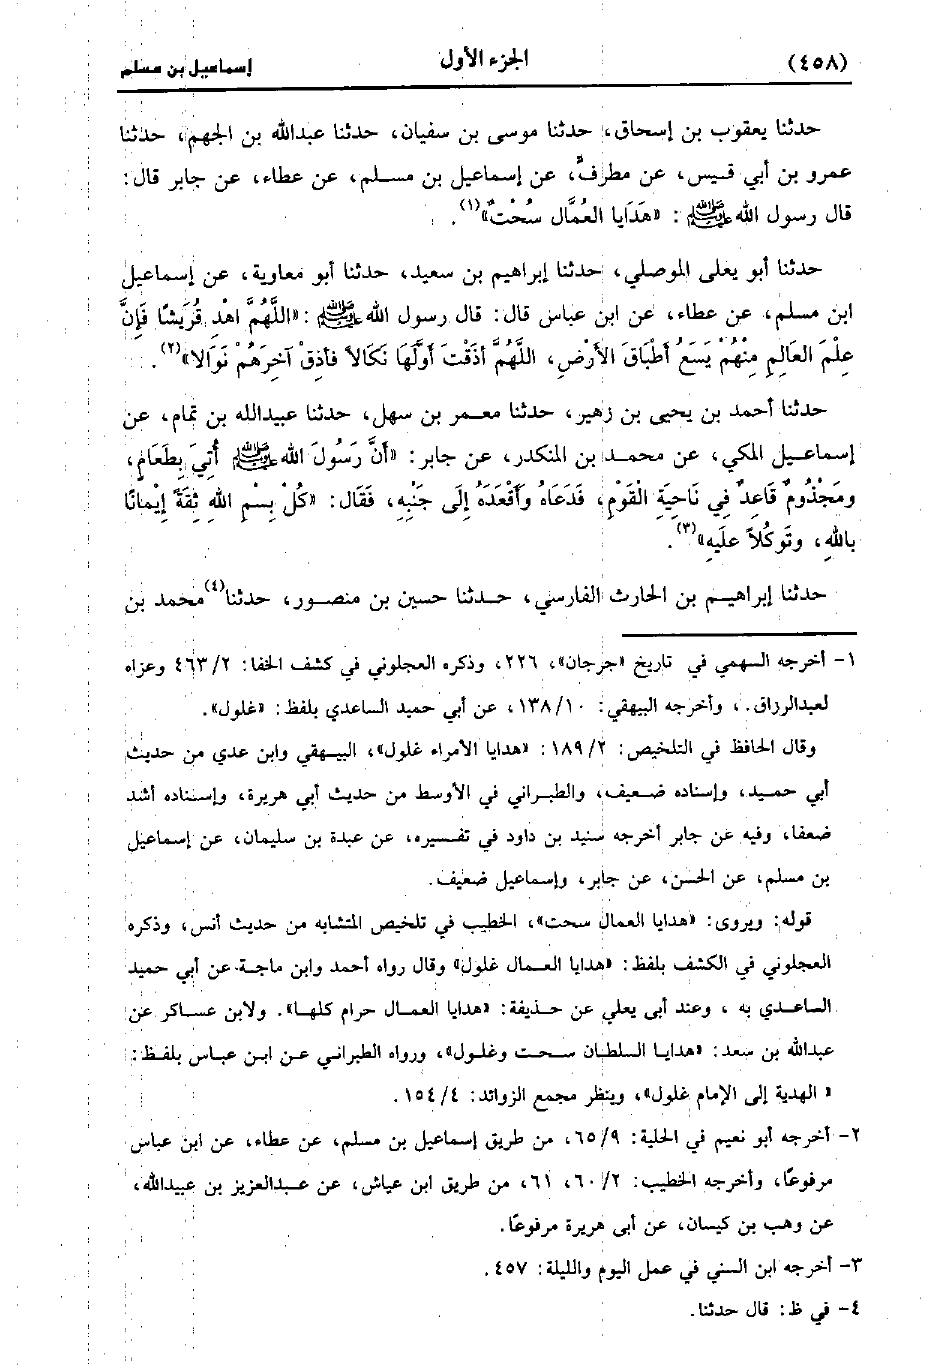 (٤٥٨) الجزء الأول إسماعيل بن مسلم
حدثنا يعقوب بن إسحاق، حدثنا موسى بن سفيان، حدثنا عبدالله بن الجهم، حدثنا
عمرو بن أبي قيس، عن مطرف، عن إسماعيل بن مسلم، عن عطاء، عن جابر قال:
قال رسول الله ﷺ: «هَدَايا العُمَّال سُحْتٌ»(١).
حدثنا أبو يعلى الموصلي، حدثنا إبراهيم بن سعيد، حدثنا أبو معاوية، عن إسماعيل
ابن مسلم، عن عطاء، عن ابن عباس قال: قال رسول الله ﷺ: «اللَّهُمَّ اهْدِ قُرَيْشًا فَإِنَّ
عِلْمَ العَالِمِ مِنْهُمْ يَسَعُ أَطْبَاقَ الأَرْضِ، اللَّهُمَّ أَذَقْتَ أَوَّلَهَا نَكَالاً فأذِقْ آخِرَهُمْ نَوَالا»(٢).
حدثنا أحمد بن يحيى بن زهير، حدثنا معمر بن سهل، حدثنا عبيدالله بن تمام، عن
إسماعيل المكي، عن محمد بن المنكدر، عن جابر: «أَنَّ رَسُولَ الله ﷺ أُتِيَ بِطَعَامٍ،
ومَجْذُومٌ قَاعِدٌ فِي نَاحِيَةِ الْقَوْمِ، فَدَعَاهُ وأَقْعَدَهُ إِلَى جَنْبِهِ، فَقَال: «كُلْ بِسْمِ اللهِ ثِقَةً إِيْمَانًا
بالله، وتَوكُلاً علَيهِ»(٣).
حدثنا إبراهيم بن الحارث الفارسي، حدثنا حسين بن منصور، حدثنا(٤) محمد بن
١- أخرجه السهمي في تاريخ «جرجان»، ٢٢٦، وذكره العجلوني في كشف الخفا: ٤٦٣/٢ وعزاه
لعبدالرزاق.، وأخرجه البيهقي: ١٣٨/١٠، عن أبي حميد الساعدي بلفظ: «غلول».
وقال الحافظ في التلخيص: ١٨٩/٢: «هدايا الأمراء غلول»، البيهقي وابن عدي من حديث
أبي حميد، وإسناده ضعيف، والطبراني في الأوسط من حديث أبي هريرة، وإسناده أشد
ضعفا، وفيه عن جابر أخرجه سنيد بن داود في تفسيره، عن عبدة بن سليمان، عن إسماعيل
بن مسلم، عن الحسن، عن جابر، وإسماعيل ضعيف.
قوله: ويروى: «هدايا العمال سحت»، الخطيب في تلخيص المتشابه من حديث أنس، وذكره
العجلوني في الكشف بلفظ: «هدايا العمال غلول» وقال رواه أحمد وابن ماجة عن أبي حميد
الساعدي به ، وعند أبى يعلي عن حذيفة: «هدايا العمال حرام كلها». ولابن عساكر عن
عبدالله بن سعد: «هدايا السلطان سحت وغلول»، ورواه الطبراني عن ابن عباس بلفظ:
« الهدية إلى الإمام غلول»، وينظر مجمع الزوائد: ١٥٤/٤.
٢- أخرجه أبو نعيم في الحلية: ٦٥/٩، من طريق إسماعيل بن مسلم، عن عطاء، عن ابن عباس
مرفوعًا، وأخرجه الخطيب: ٦٠/٢، ٦١، من طريق ابن عياش، عن عبدالعزيز بن عبيدالله،
عن وهب بن كيسان، عن أبى هريرة مرفوعًا.
٣- أخرجه ابن السني في عمل اليوم والليلة: ٤٥٧.
٤- في ظ: قال حدثنا.